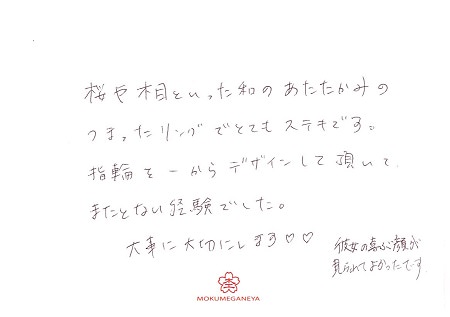 桜や木目といった和のあたたかみの
つまったリングでとてもステキです。
指輪を一からデザインして頂いて、
またとない経験でした。
大事に大切にします♡♡
彼女の喜ぶ顔が
見られてよかったでーす
MOKUMEGANEYA